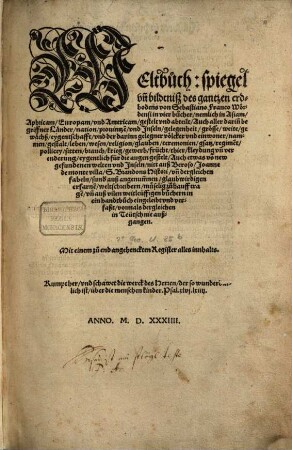 Weltbůch: spiegel
vñ bildtniß des gantzen erd=
bodens von Sebastiano Franco Wör=
densi in vier bücher/ nemlich in Asiam/
Aphricam/ Europam/ vnd Americam/ gestelt vnd abteilt/ Auch aller darin be
griffner Länder/ nation/ prouintzē/ vnd Inseln/ gelegenheit/ grösse/ weite/ ge
wächß/ eygentschafft/ vnd der darinn gelegener völcker vnd einwoner/ nam=
men/ gestalt/ leben/ wesen/ religion/ glauben/ ceremonien/ gsatz/ regimēt/
pollicey/ sitten/ brauch/ krieg/ gewerb/ frücht/ thier/ kleydung vñ ver
enderung/ eygentlich für die augen gestelt/ Auch etwas vō new
gefundenen welten vnd Inseln/ nit auß Beroso/ Joanne
de monte villa/ S. Brandons Histori/ vñ dergleichen
fabeln/ sund auß angenummnen/ glaubwirdigen
erfarnē/ weltschreibern/ müselig zů hauff tra
gē/ vñ auß vilen weitleüffigen büchern in
ein handtbůch eingeleibt vnd ver=
faßt/ vormals dergleichen
in Teütsch nie auß=
gangen.
Mit einem zů end angehenckten Register alles innhalts.
Kumpt her/ vnd schawet die werck des Herren/ der so wunderbarlich
lich ist/ über die menschen kinder. Psal. xlvj. lxiiij.
ANNO. M. D. XXXIIII.